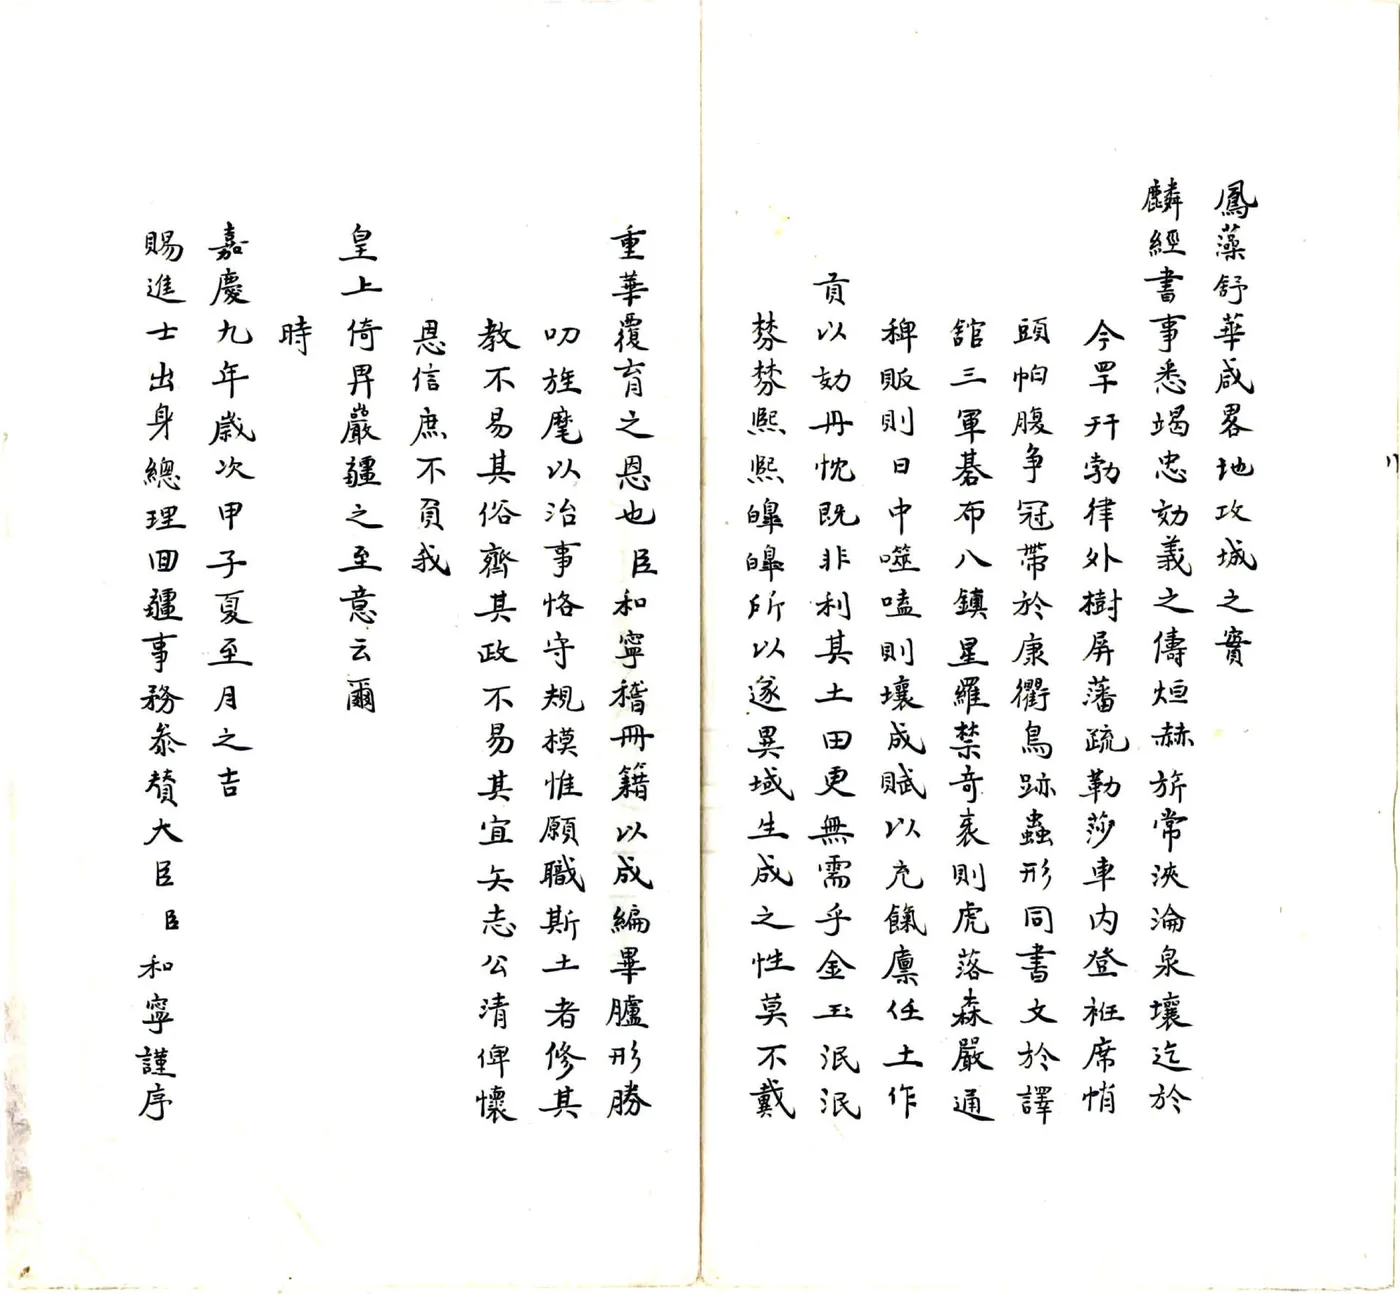 鳳藻舒華咸畧地攻城之實
麟經書事悉竭忠効義之儔烜赫旂常浹淪泉壤迄於
今罕幵勃律外樹屏藩疏勒莎車内登袵席帩
頭帕腹争冠帶於康衢鳥跡蟲形同書文於譯
舘三軍碁布八鎮星羅禁奇衺則虎落森嚴通
稗販則日中噬嗑則壤成賦以充餼廪任土作
貢以効丹忱既非利其土田更無需乎金玉泯泯
棼棼熙熙皥皥所以遂異域生成之性莫不戴
重華覆育之恩也臣和寧稽冊籍以成編畢臚形勝
叨旌麾以治事恪守規模惟願職斯土者修其
教不易其俗齊其政不易其宜矢志公清俾懷
恩信庶不負我
皇上倚畀嚴疆之至意云爾
時
嘉慶九年歲次甲子夏至月之吉
賜進士出身總理回疆事務叅賛大臣臣和寧謹序